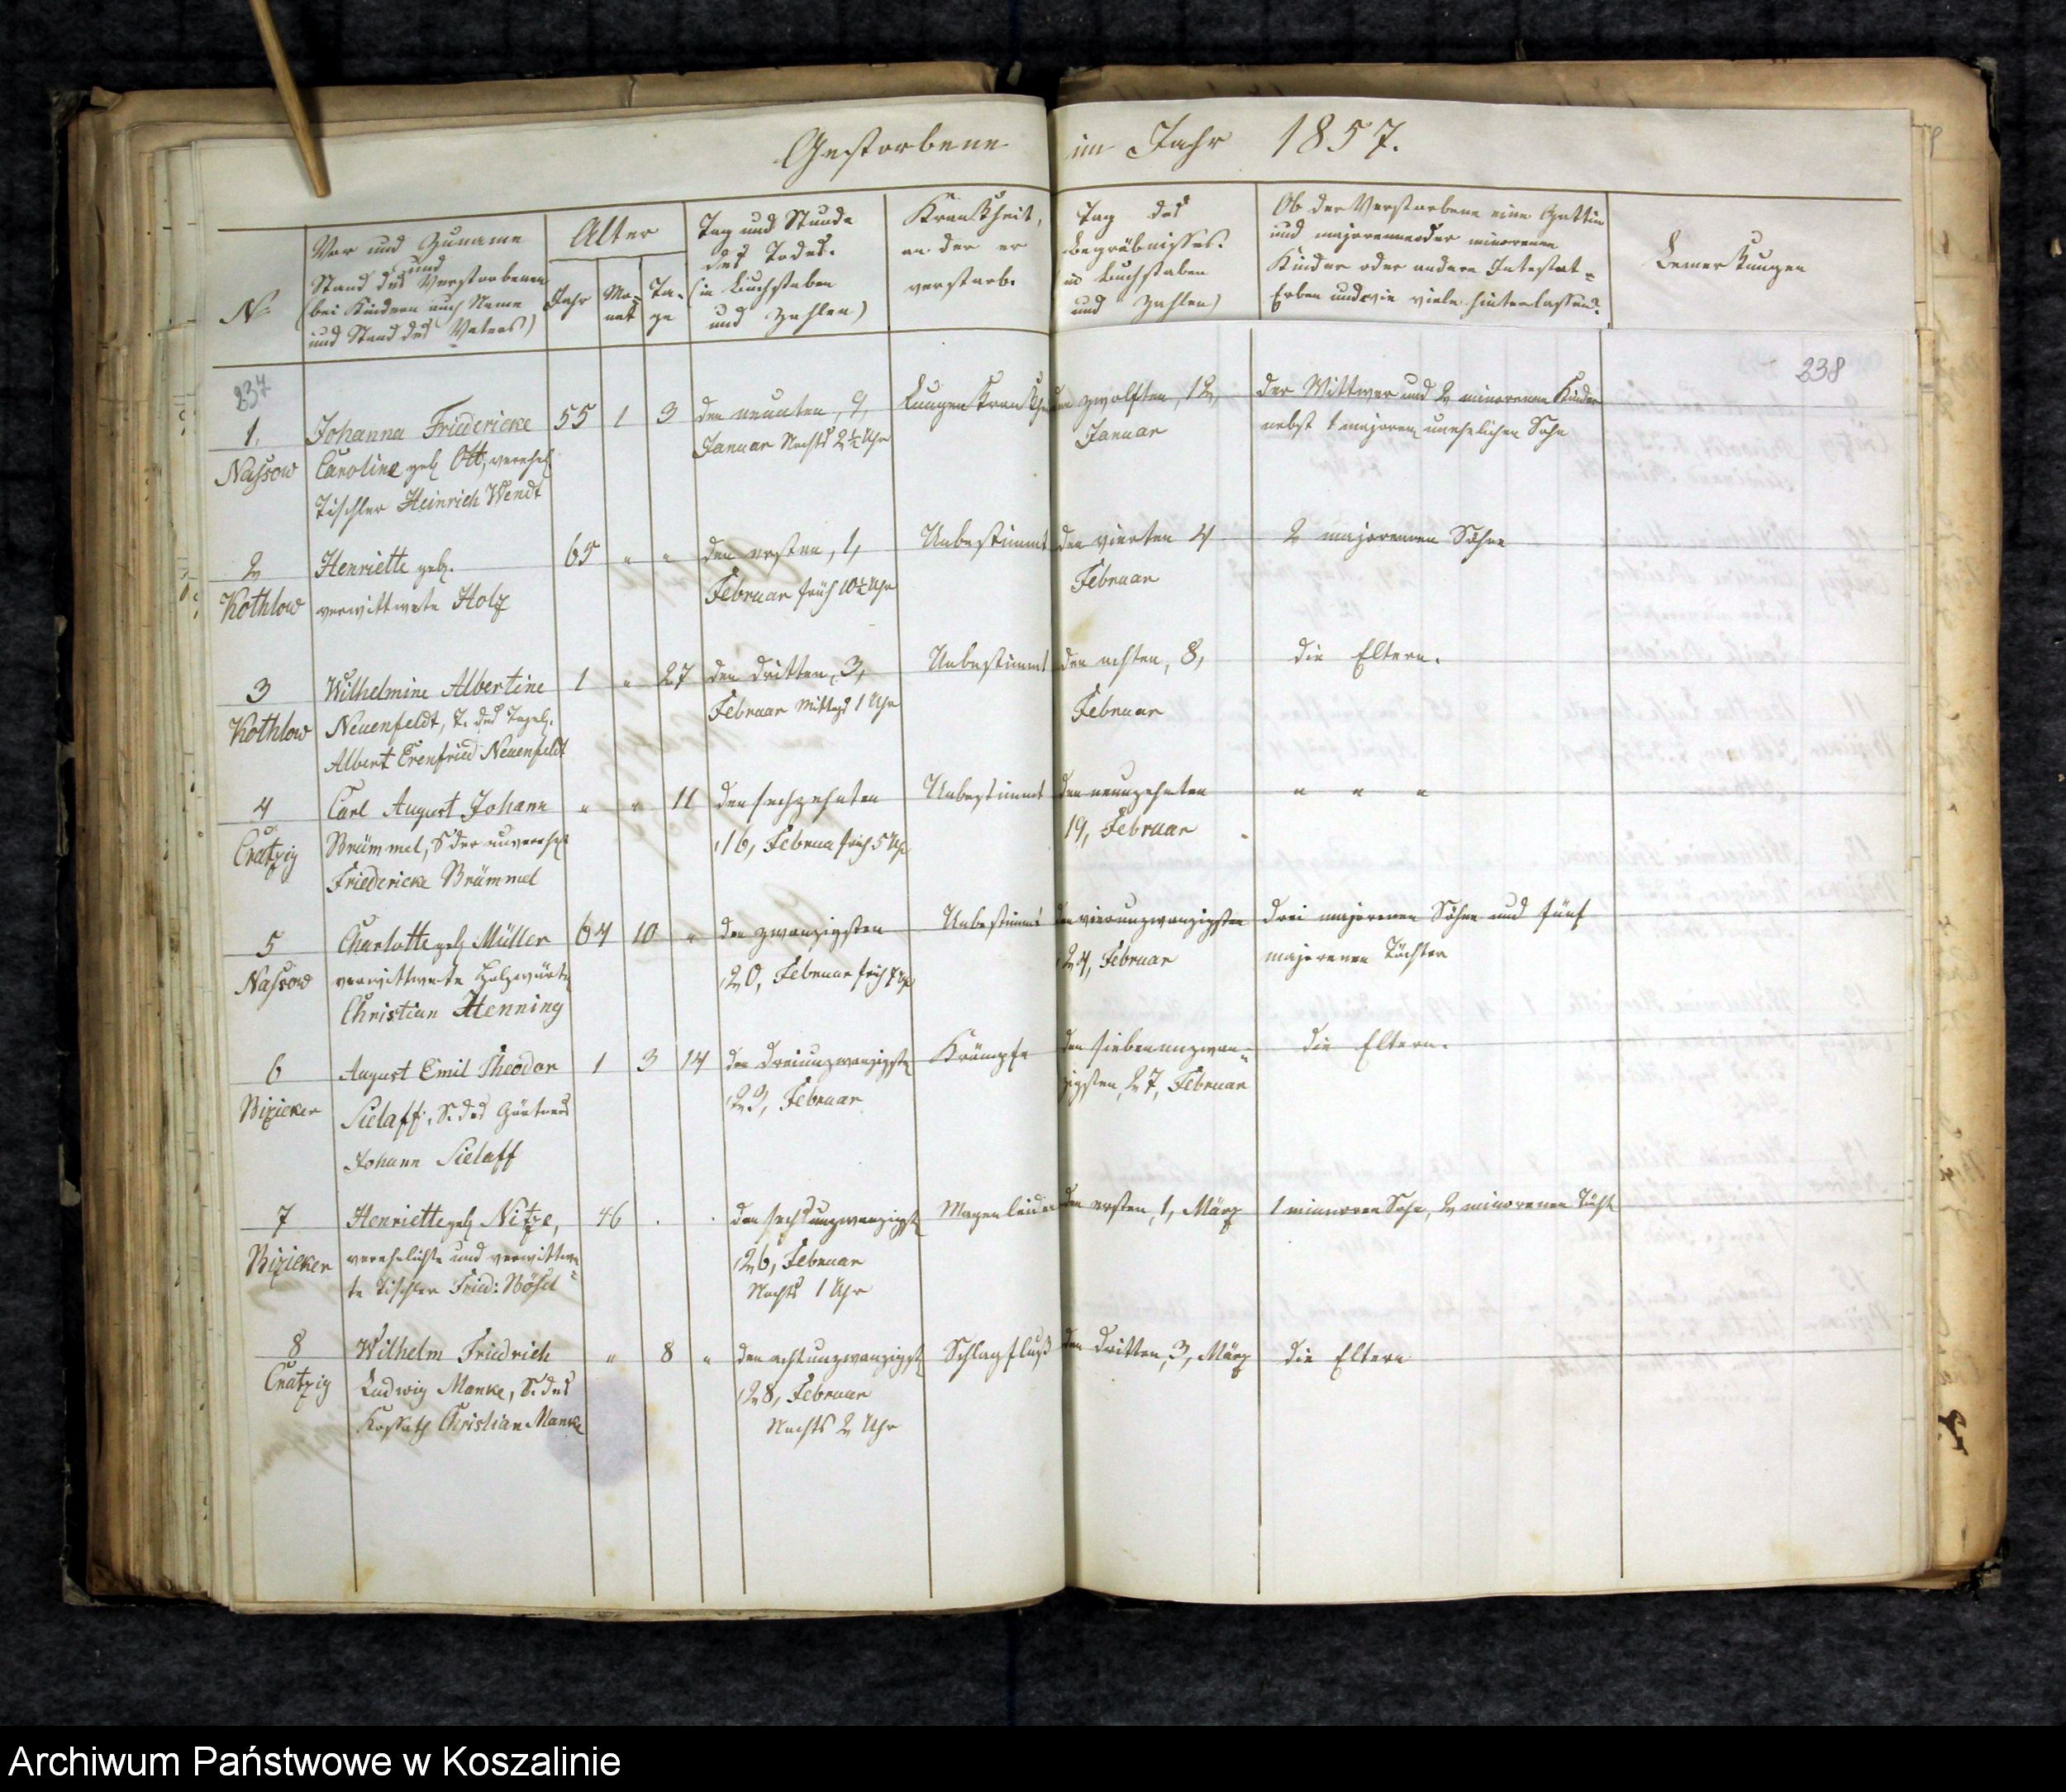 Gestorbene im Jahr 1857.
No
Vor und Zuname
und
Stand des Verstorbenen
(bei Kindern auch Name
und Stand des Vaters)
Alter
Jahr
Mo=
nat
Ta=
ge
Tag und Stunde
des Todes.
(in Buchstaben
und Zahlen)
Krankheit,
an der er
verstarb.
Tag des
Begräbnisses.
(in Buchstaben
und Zahlen)
Ob der Verstorbene eine Gattin
und majorenne oder minorenne
Kinder oder andere Intestat=
Erben und wie viele hinterlassen?
Bemerkungen
237
238
1. Johanna Friedericke 55 1 3 den neunten, 9, Lungenkrankh den zwölften, 12, der Wittwer und 2 minorenne Kinder
Januar Nachts 2½ Uhr Januar nebst 1 majoren unehelichen Sohn
Nassow Caroline geb Ott, verehel
Tischler Heinrich Wendt
2 Henriette geb. 65 " " den ersten, 1, Unbestimmt den vierten 4 2 majorenne Söhne
Kothlow verwittwete Holz Februar früh 10½ Uhr Februar
3 Wilhelmine Albertine 1 " 27 den dritten, 3, Unbestimmt den achten, 8, die Eltern.
Kothlow Neuenfeldt, T. des Tagel. Februar Mittags 1 Uhr Februar
Albert Erenfried Neuenfeldt
4 Carl August Johann " " 11 den sechzehnten Unbestimmt den neunzehnten " " "
Cratzig Brümmel, S der unverehel 16, Februa früh 5 Uhr 19, Februar
Friedericke Brümmel
5 Charlotte geb Müller 64 10 " den zwanzigsten Unbestimmt den vierunzwanzigsten drei majorenne Söhne und fünf
Nassow verwittwete Holzwärt 20, Februar früh 7 Uhr 24, Februar majorenne Töchter
Christian Henning
6 August Emil Theodor 1 3 14 den dreiunzwanzigst Krämpfe den siebenunzwan=
Biziker Sielaff, S. des Gärtners 23, Februar zigsten, 27, Februar die Eltern.
Johann Sielaff
7 Henriette geb Nitze, 46 . . den sechsunzwanzigst Magenleiden den ersten, 1, März 1 minnoren Sohn, 2 minorenne Töcht
Bizieker verehelichte und verwittwe= 26, Februar
te Tischler Fried: Bösel Nachts 1 Uhr
8 Wilhelm Friedrich " 8 " den achtunzwanzigst Schlagfluß den dritten, 3, März die Eltern
Cratzig Ludwig Manke, S. des 28, Februar
Kossath Christian Manke Nachts 2 Uhr
Archiwum Państwowe w Koszalinie